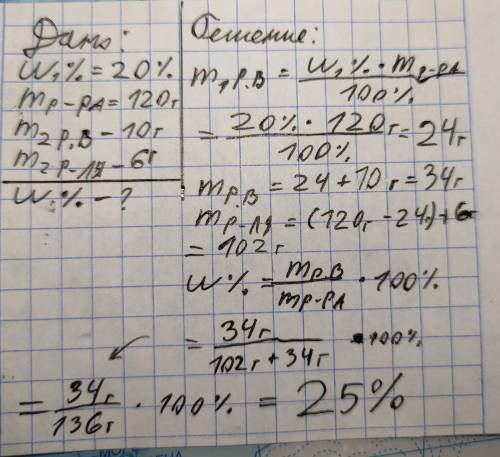 Дано:
W₁% = 20%
mр-рА = 120г
m₂ р.В – 10г
m₂р-ля – 6г
W% – ?
Решение:
m₁р.В = W₁% · mр-рА / 100%
= 20% · 120г / 100% = 24г
mр.В = 24 + 10г = 34г
mр-ля = (120г – 24г) + 6г
= 102г
W% = mр.В / mр-рА · 100%
= 34г / 102г + 34г · 100%
= 34г / 136г · 100% = 25%